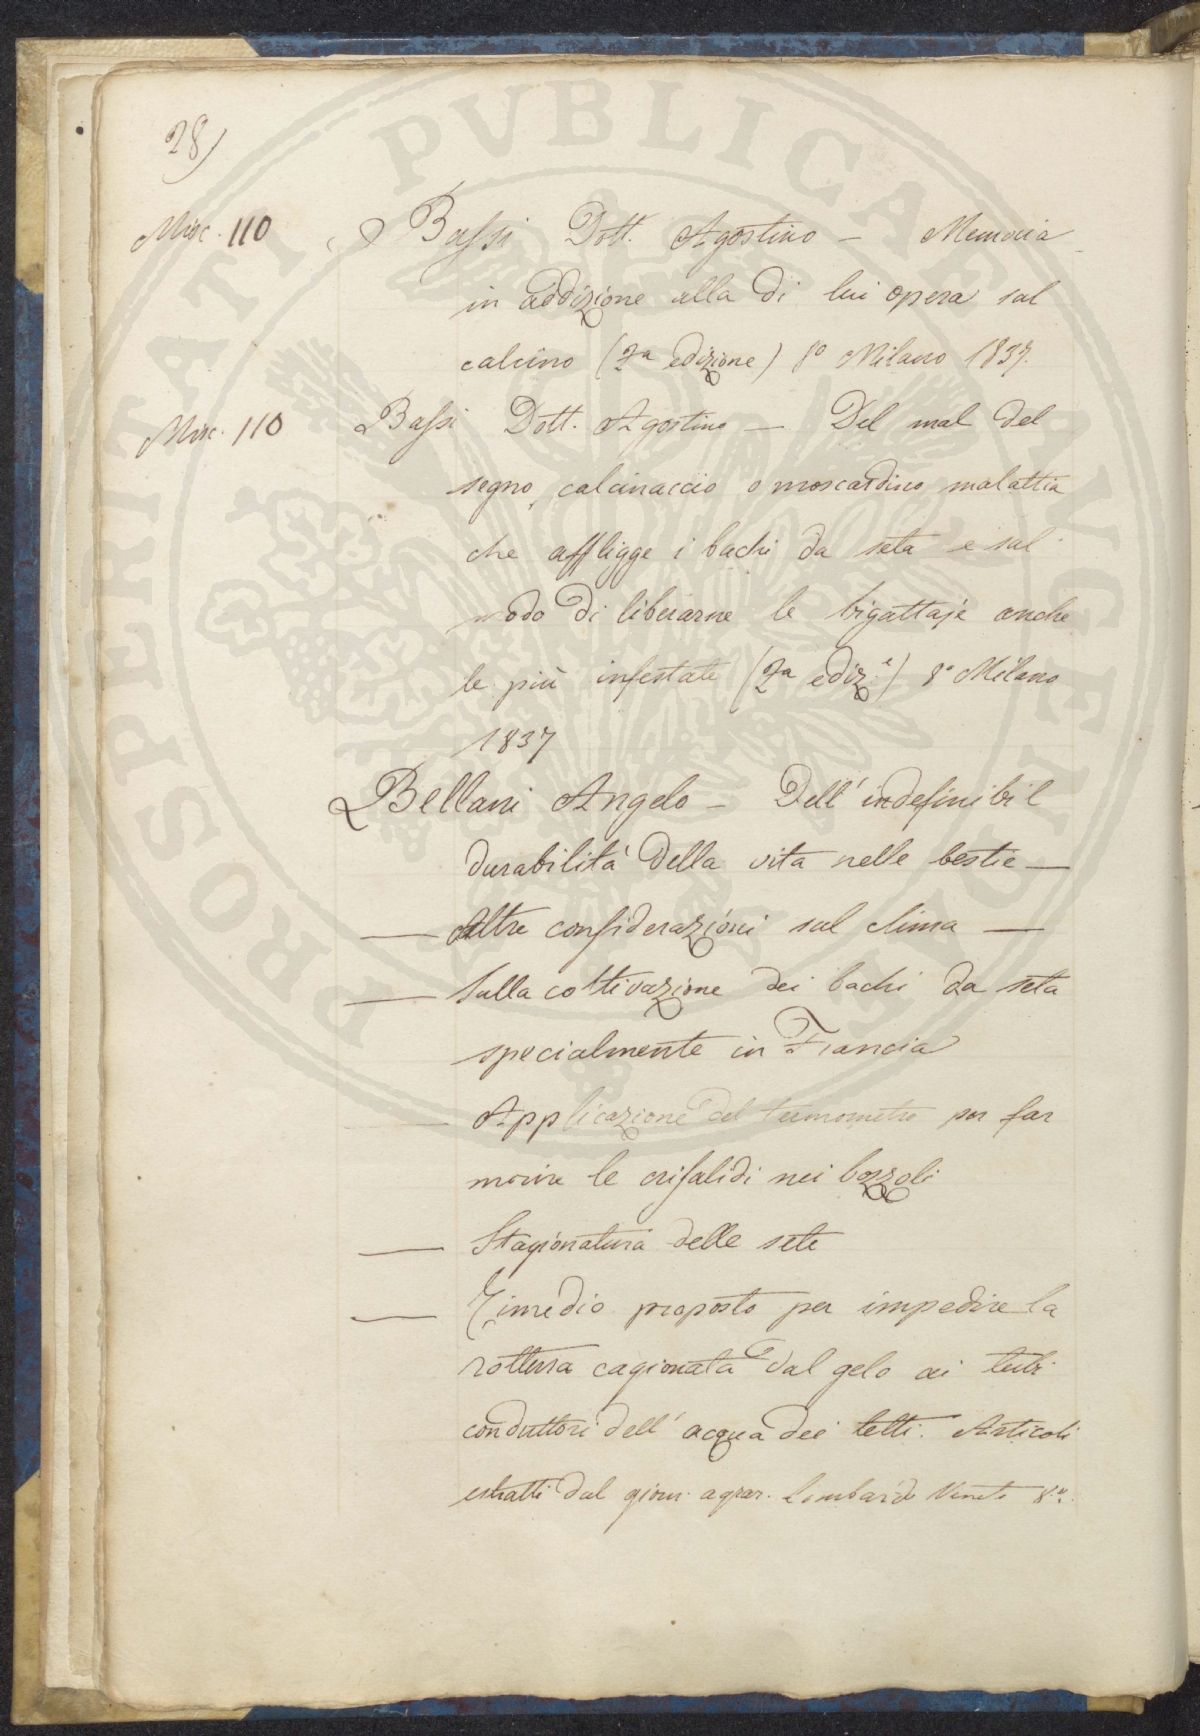 28)
Misc. 110 Bassi Dott. Agostino — Memoria
in addizione alla di lui opera sul
calcino (2a edizione) 8o Milano 1837.
Misc. 110 Bassi Dott. Agostino — Del mal del
segno, calcinaccio o moscardino malattia
che affligge i bachi da seta e sul
modo di liberarne le bigattaje anche
le più infestate (2a ediz.e) 8o Milano
1837
Bellani Angelo — Dell'indefinibil
durabilità della vita nelle bestie —
— Altre considerazioni sul clima —
— Sulla coltivazione dei bachi da seta
specialmente in Francia
— Applicazione del termometro per far
morire le crisalidi nei bozzoli
— Stagionatura delle sete
— Rimedio proposto per impedire la
rottura cagionata dal gelo ai tubi
conduttori dell'acqua dei tetti. Articoli
estratti dal giorn. agrar. Lombardo Veneto 8.o
PROSPERITATI PVBLICAE AVGENDAE